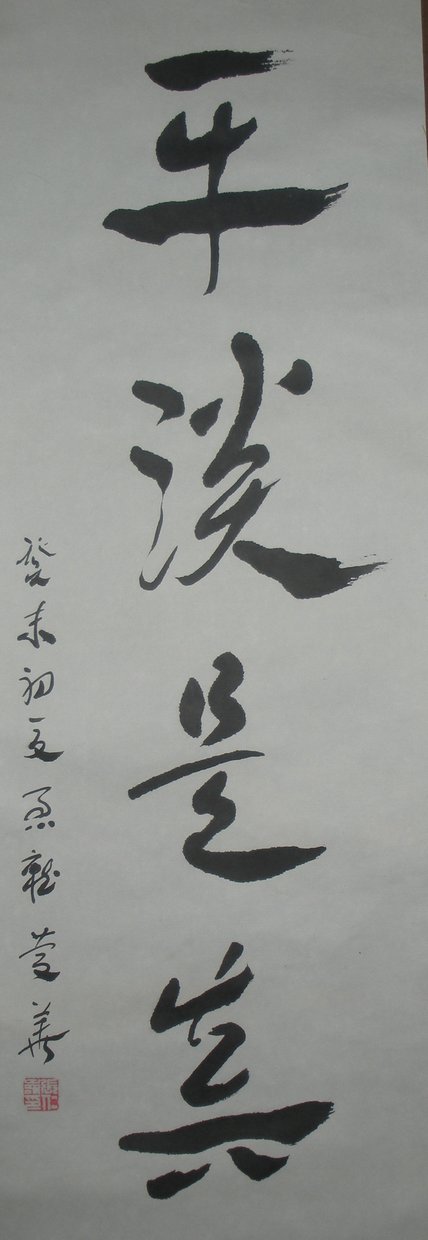 平淡是真
癸未初夏 華